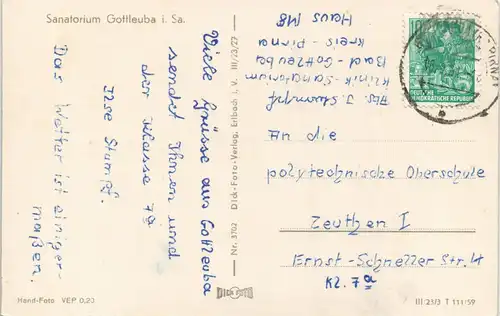 Sanatorium Gottleuba i. Sa.
Viele Grüsse aus Gottleuba
sendet Ihnen und
der Klasse 7a
Ilse Stumpf.
Das Wetter ist einiger-
maßen.
Hand-Foto VEP 0,20
Nr. 3702 Dick-Foto-Verlag, Erlbach i. V. III/3/27
DICK FOTO
Abs. J. Stumpf
Klinik-Sanatorium
Bad-Gottleuba
Kreis-Pirna
Haus M8
DEUTSCHE
DEMOKRATISCHE REPUBLIK
An die
polytechnische Oberschule
Zeuthen I
Ernst-Schneller Str. 4
Kl. 7a
III/23/3 T 111/59